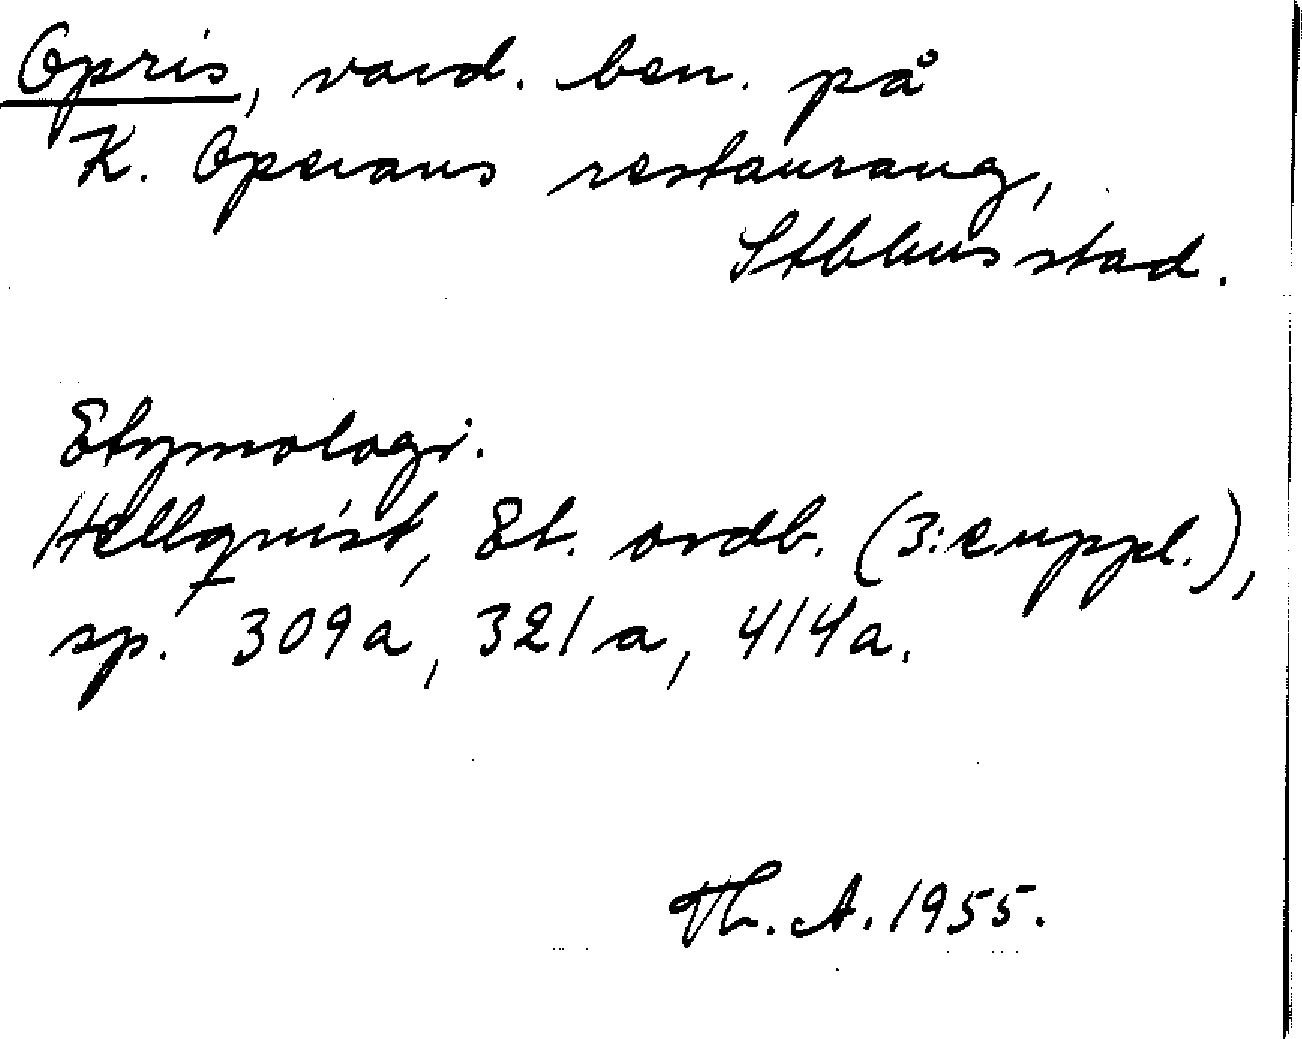 Opris, vard. ben. på
K. Operans restaurang,
Sthlms stad.
Etymologi.
Hellquist, Et. ordb. (3:e uppl.),
sp. 309a, 321a, 414a.
Th. A. 1955.